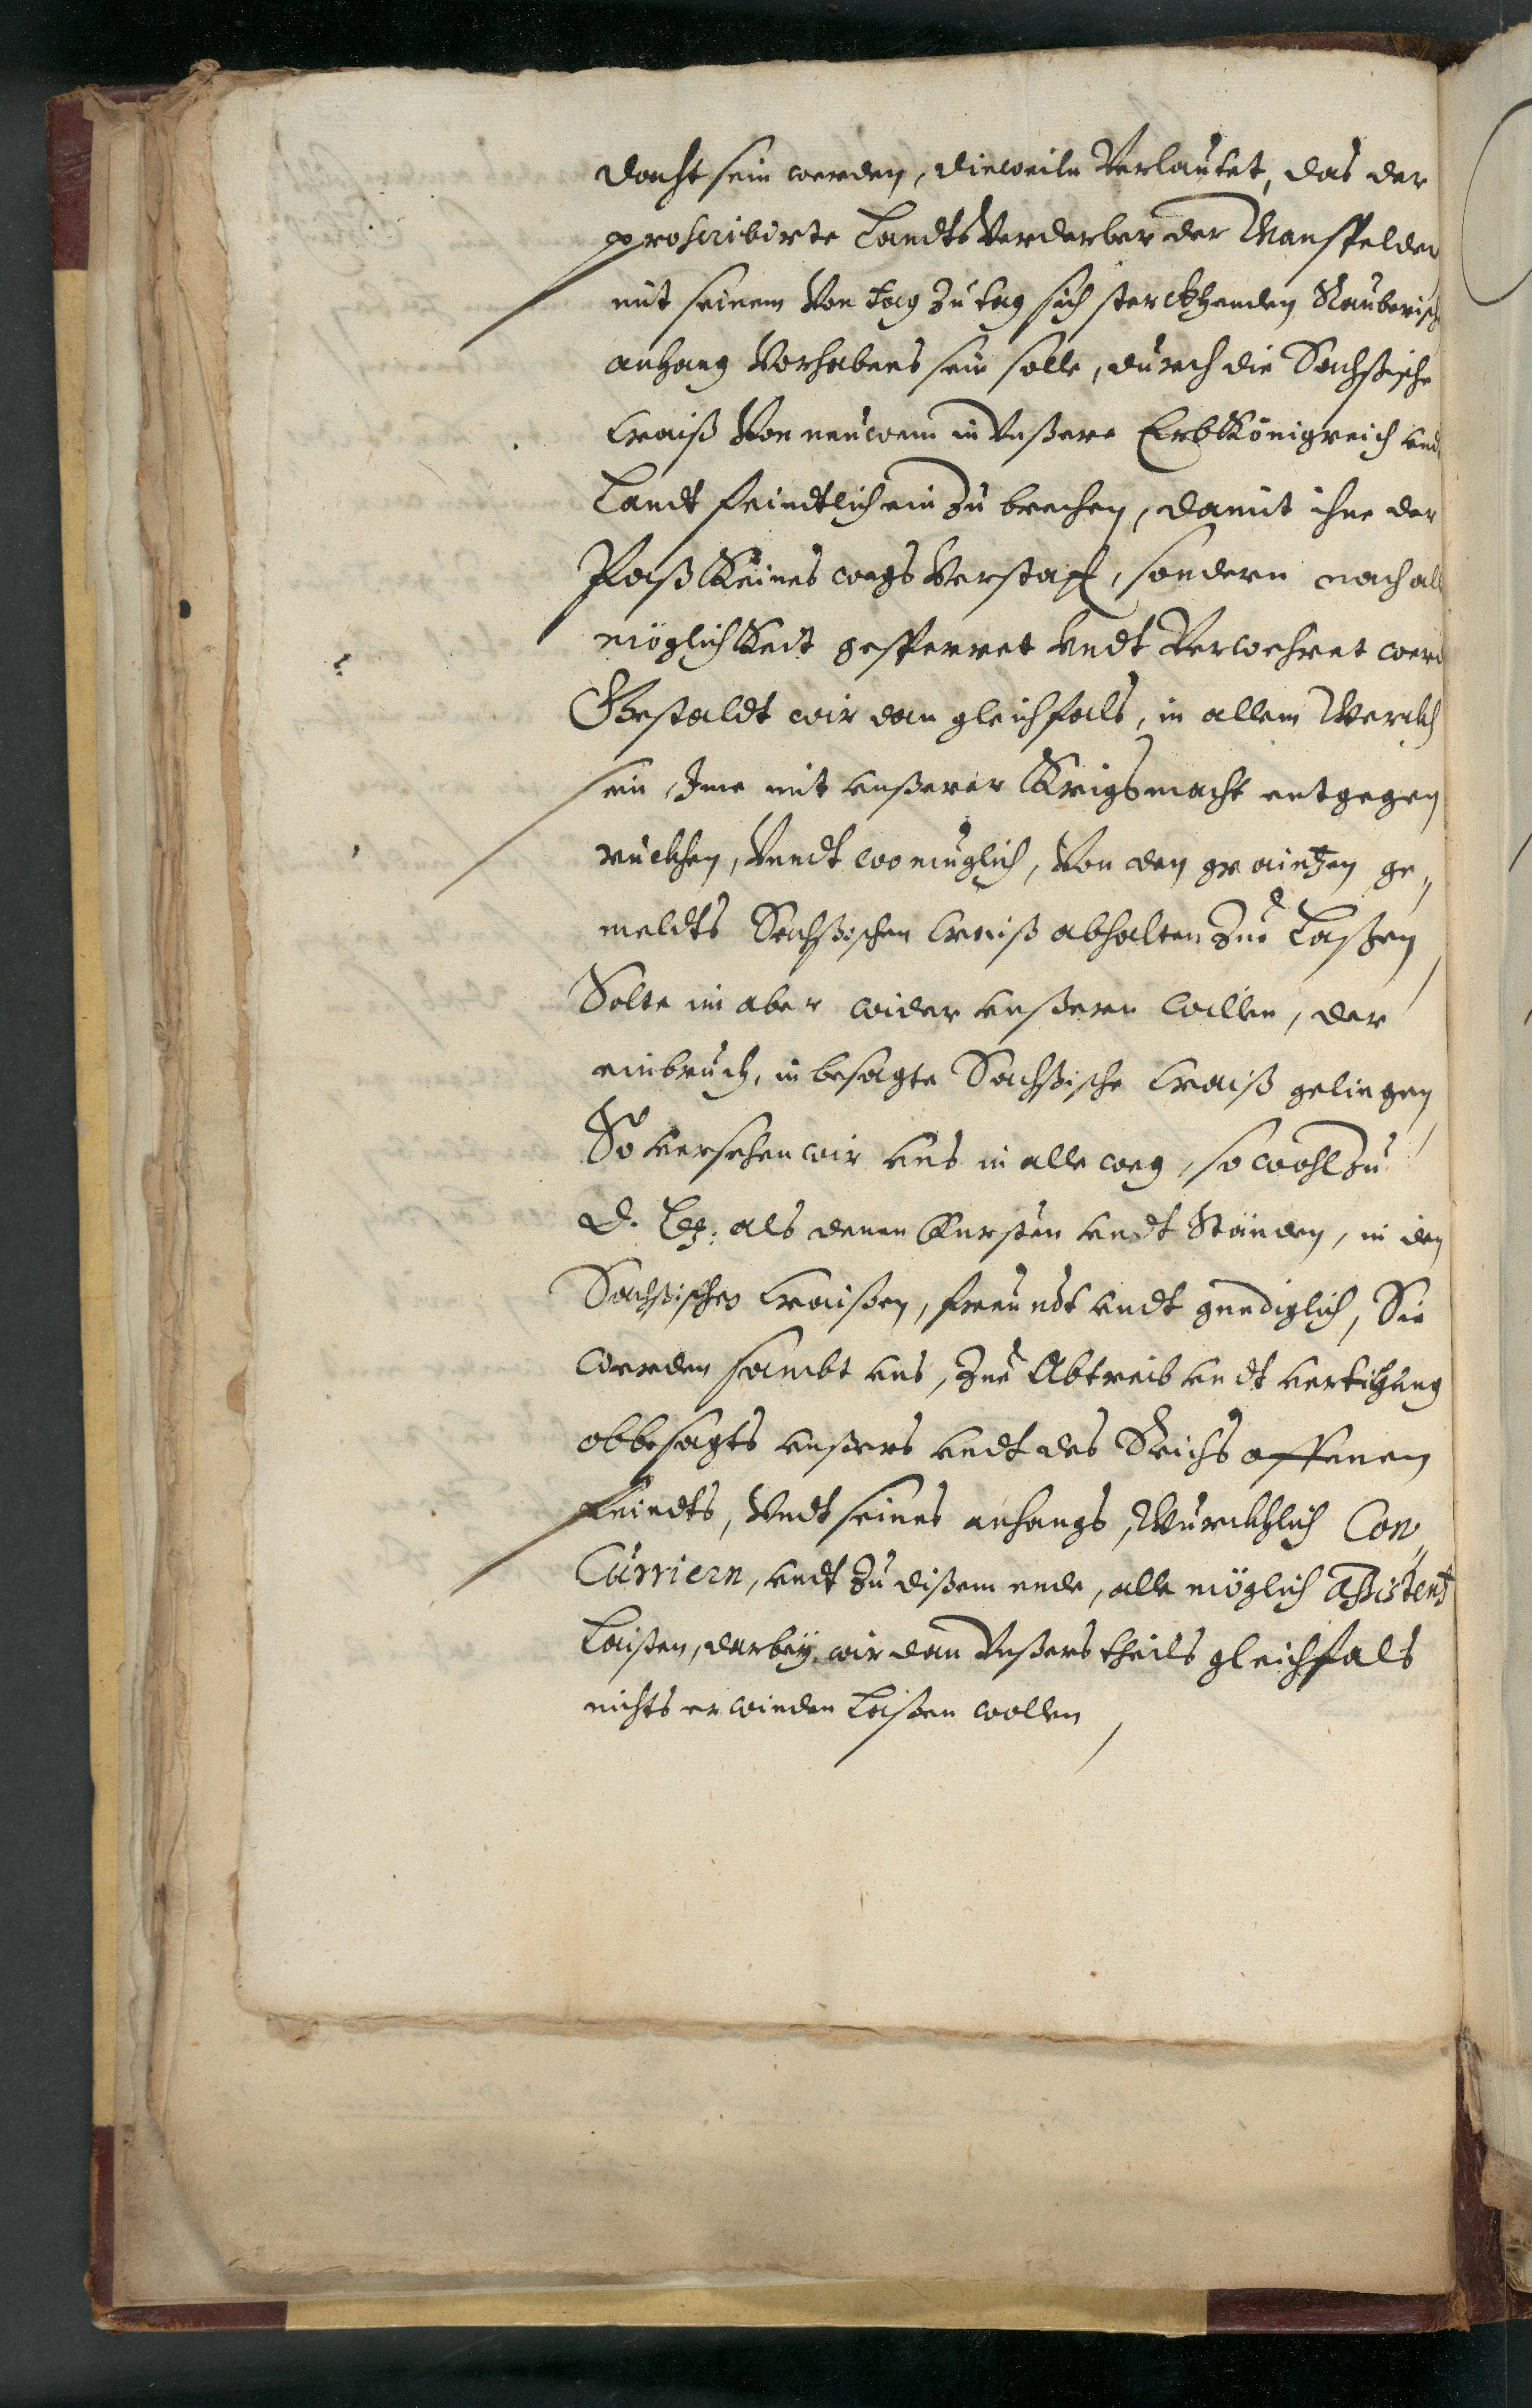 dacht sein werden, dieweiln Verlautet, das der
proscribirte Landts Verderber der Mansfelder
mit seinem Von tag zu tag sich sterckhenden Rauberisch
anhang Vorhabens sein solle, durch die Sachßische
Craiß Von neuwem in Vnßere Erb Königreich vnd
Landt feindtlich ein zu brechen, damit ihne der
Paß Keines wegs Verstatt, sondern nach all
möglichkeit gesperret vndt Verwehret werd
Gestaldt wir dan gleichfals, in allem Werckh
sein, Ime mit vnßerer Krigsmacht entgegen
ruckhen, Vnndt wo müglich, Von den graintzen ge„
meldts Sachßischen Craiß abhalten zue Laßen,
Solte im aber wider vnßeren willen, der
einbruch, in besagte Sachßische Craiß gelingen,
So versehen wir vns in alle weg, so wohl zu
D. L. als denen Fursten vndt Ständen, in den
Sachßischen Craißen, freundt vndt gnediglich, Sie
werden sambt vns, zue Abtreib vndt vertilgung
obbesagts vnßers vndt des Reichs offenen
feindts, Vndt seines anhangs, Würckhlich Con„
Curriern, vndt zu dißem ende, alle möglich Assistent
Laisten, darbey wir dan Vnßers theils gleichfals
nichts erwinden Laßen wollen,